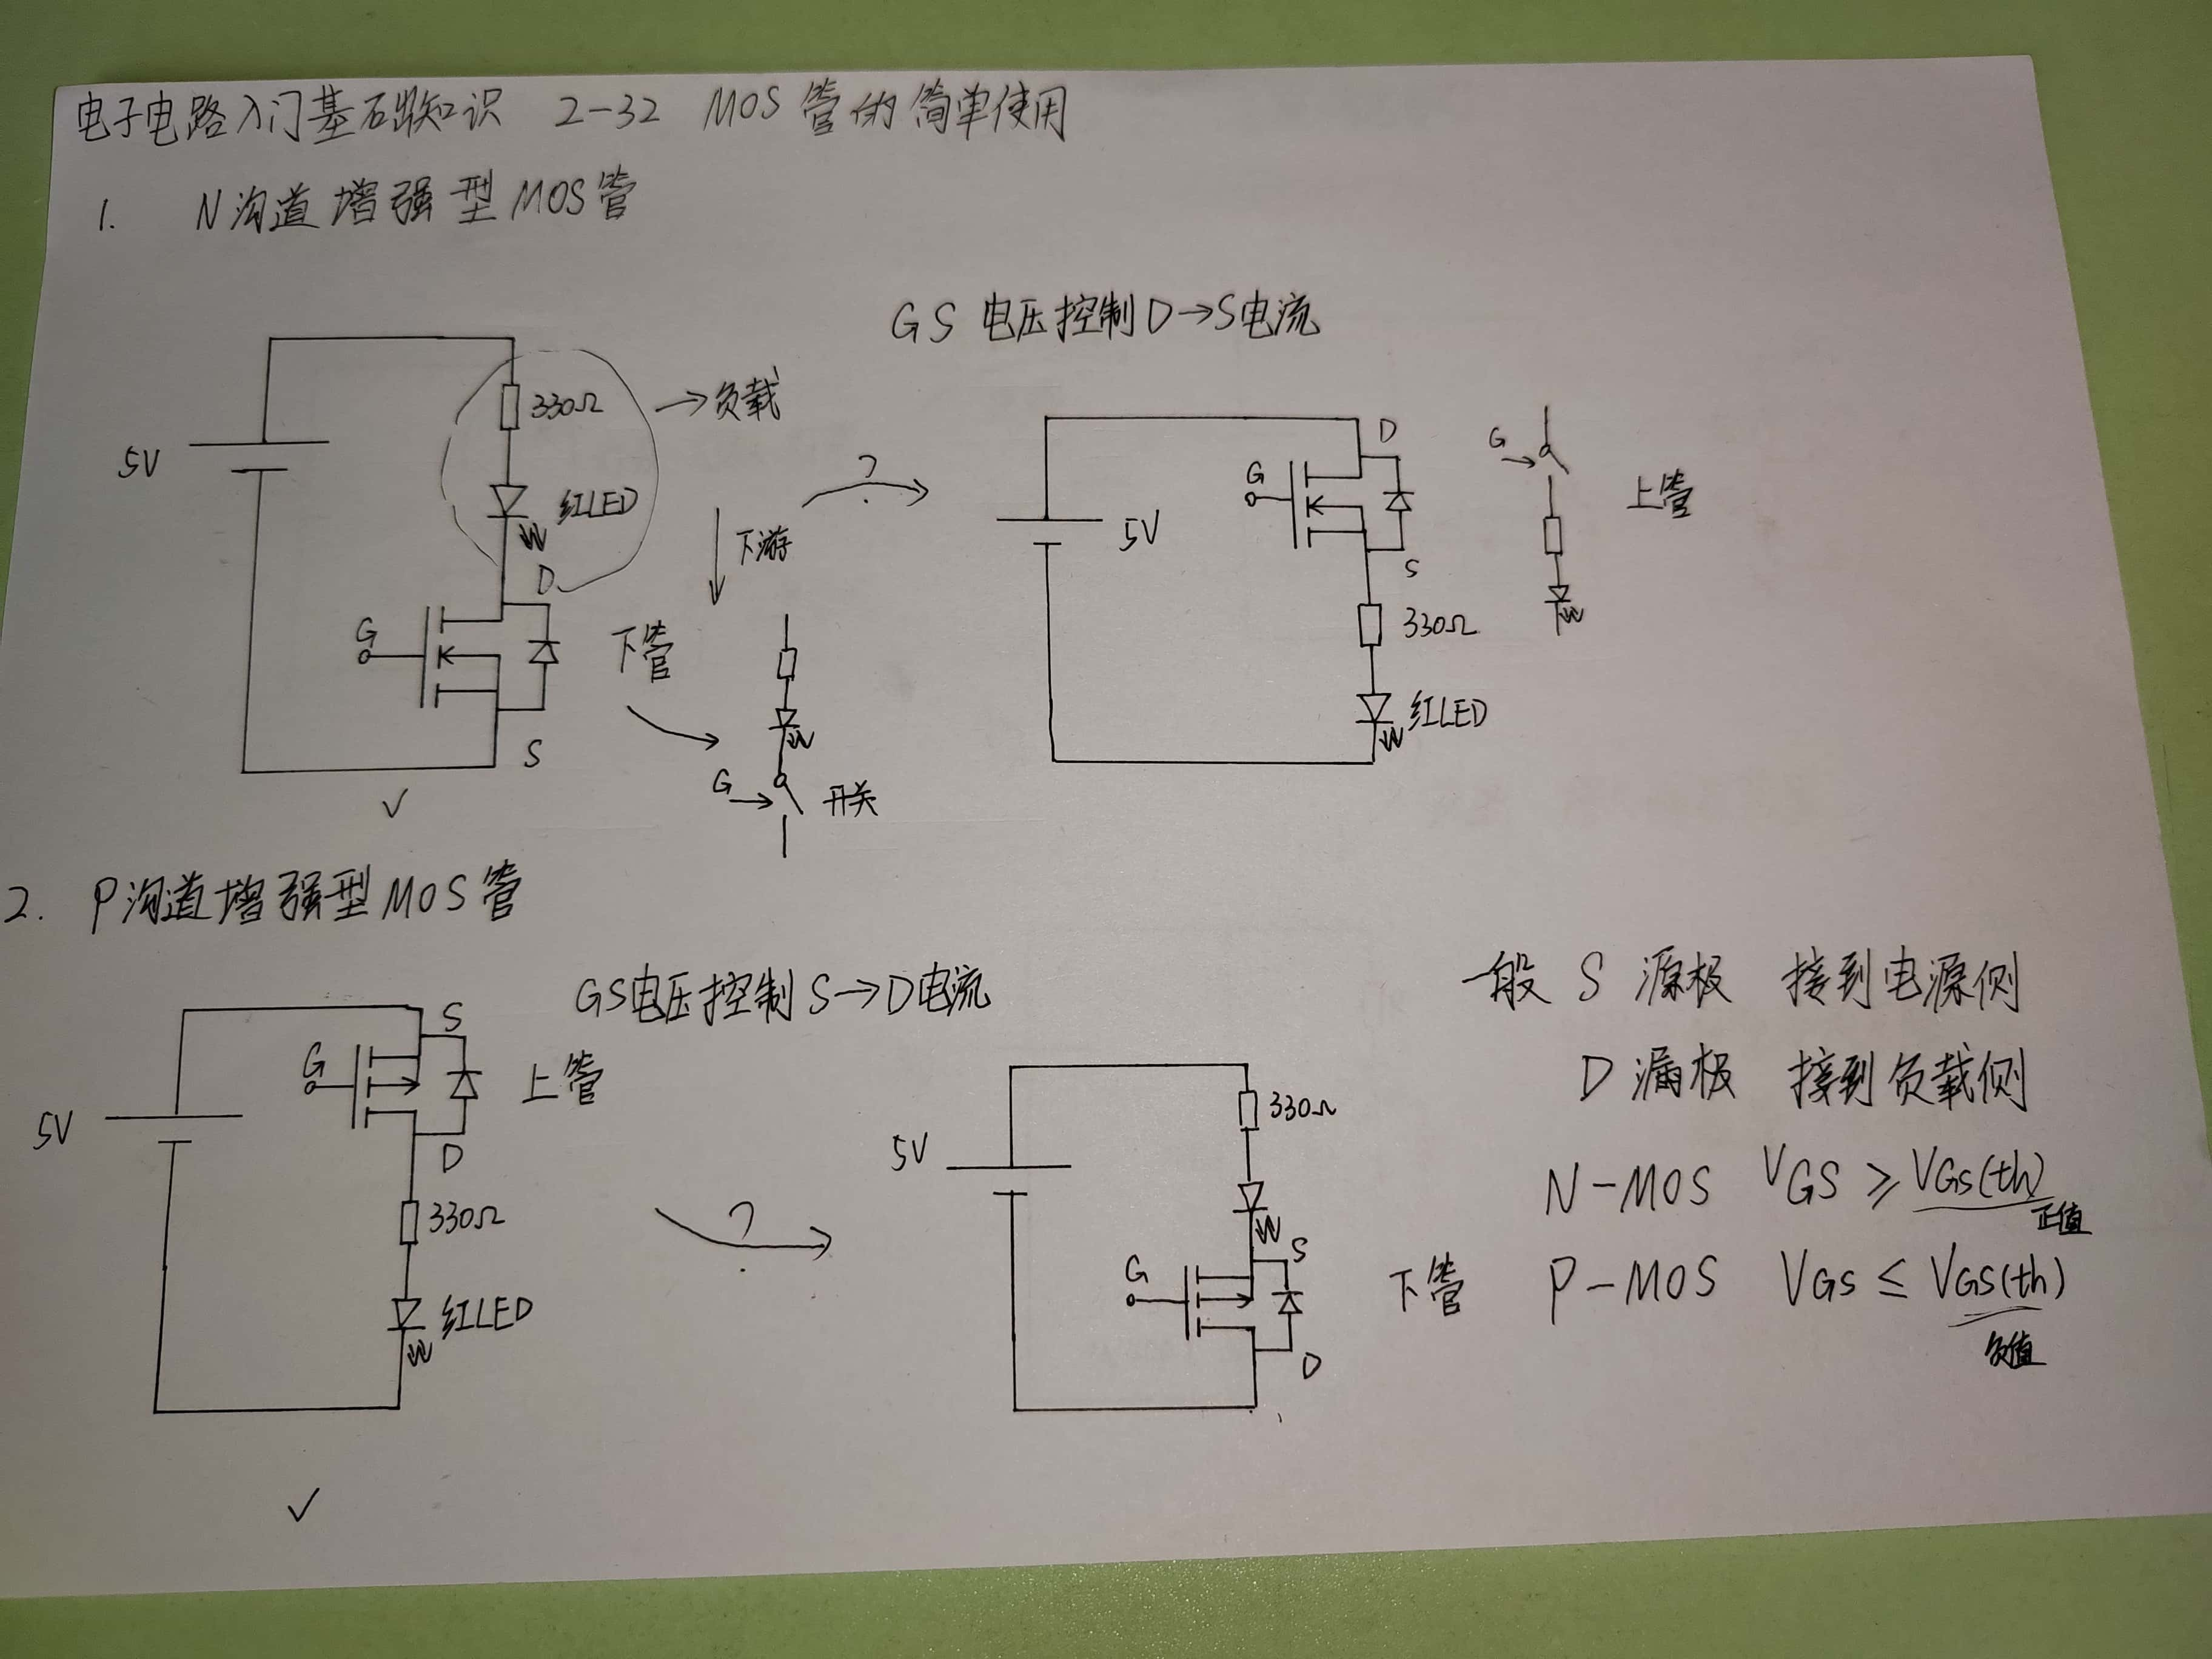 电子电路入门基础知识 2-32 MOS管的简单使用
1. N沟道增强型MOS管
GS 电压控制D→S电流
5V
330Ω
→负载
红LED
下游
D
G
S
下管
G
开关
✓
?
D
G
5V
S
330Ω
红LED
G
上管
2. P沟道增强型MOS管
GS电压控制S→D电流
5V
S
G
上管
D
330Ω
红LED
✓
?
5V
330Ω
S
G
D
下管
一般 S 源极 接到电源侧
D 漏极 接到负载侧
N-MOS VGS ≥ VGS(th)
正值
P-MOS VGS ≤ VGS(th)
负值